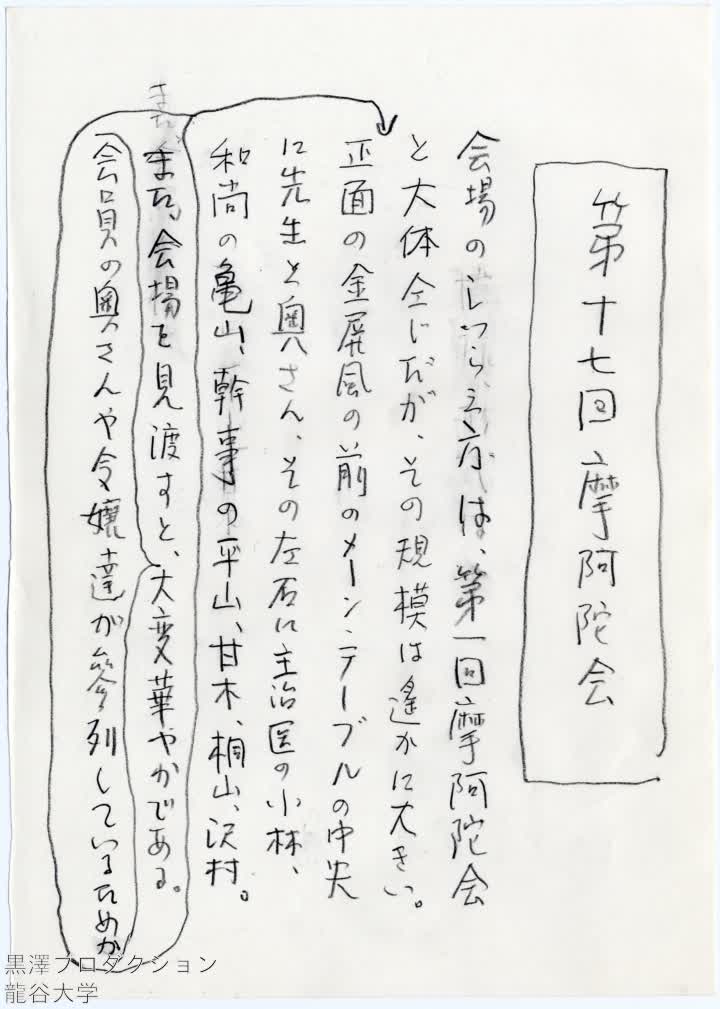 第十七回摩阿陀会
会場のしつらえ方は、第一回摩阿陀会
と大体仝じだが、その規模は遙かに大きい。
正面の金屏風の前のメーン・テーブルの中央
に先生と奥さん、その左右に主治医の小林、
和尚の亀山、幹事の平山、甘木、桐山、沢村。
また、会場を見渡すと、大変華やかである。
会員の奥さんや令嬢達が参列しているためか
黒澤プロダクション
龍谷大学